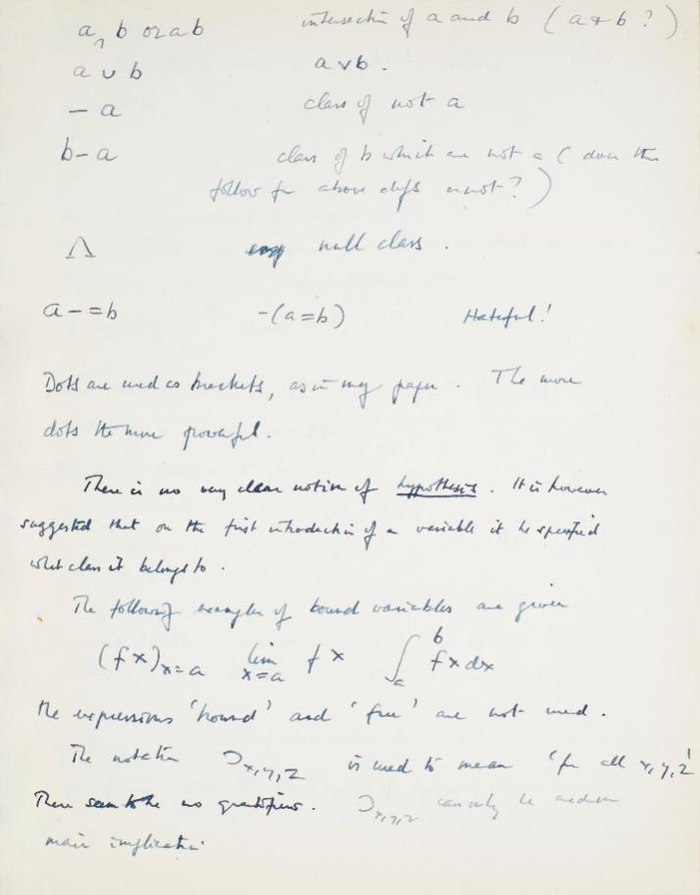 a ∩ b or ab intersection of a and b ( a & b ? )
a ∪ b a v b .
– a class of not a
b – a class of b which are not a ( does this
follow fr above defs or not ? )
Λ null class .
a – = b –(a=b) Hateful!
Dots are used as brackets, as in my paper . The more
dots the more powerful .
There is no very clear notion of hypothesis . It is however
suggested that on the first introduction of a variable it be specified
what class it belongs to .
The following examples of bound variables are given
(fx)x=a lim x=a fx ∫ₐᵇ fx dx
the expressions 'bound' and 'free' are not used .
The notation Ɔx,y,z is used to mean 'for all x,y,z'
There seem to be no quantifiers . Ɔx,y,z can only be used in
main implication